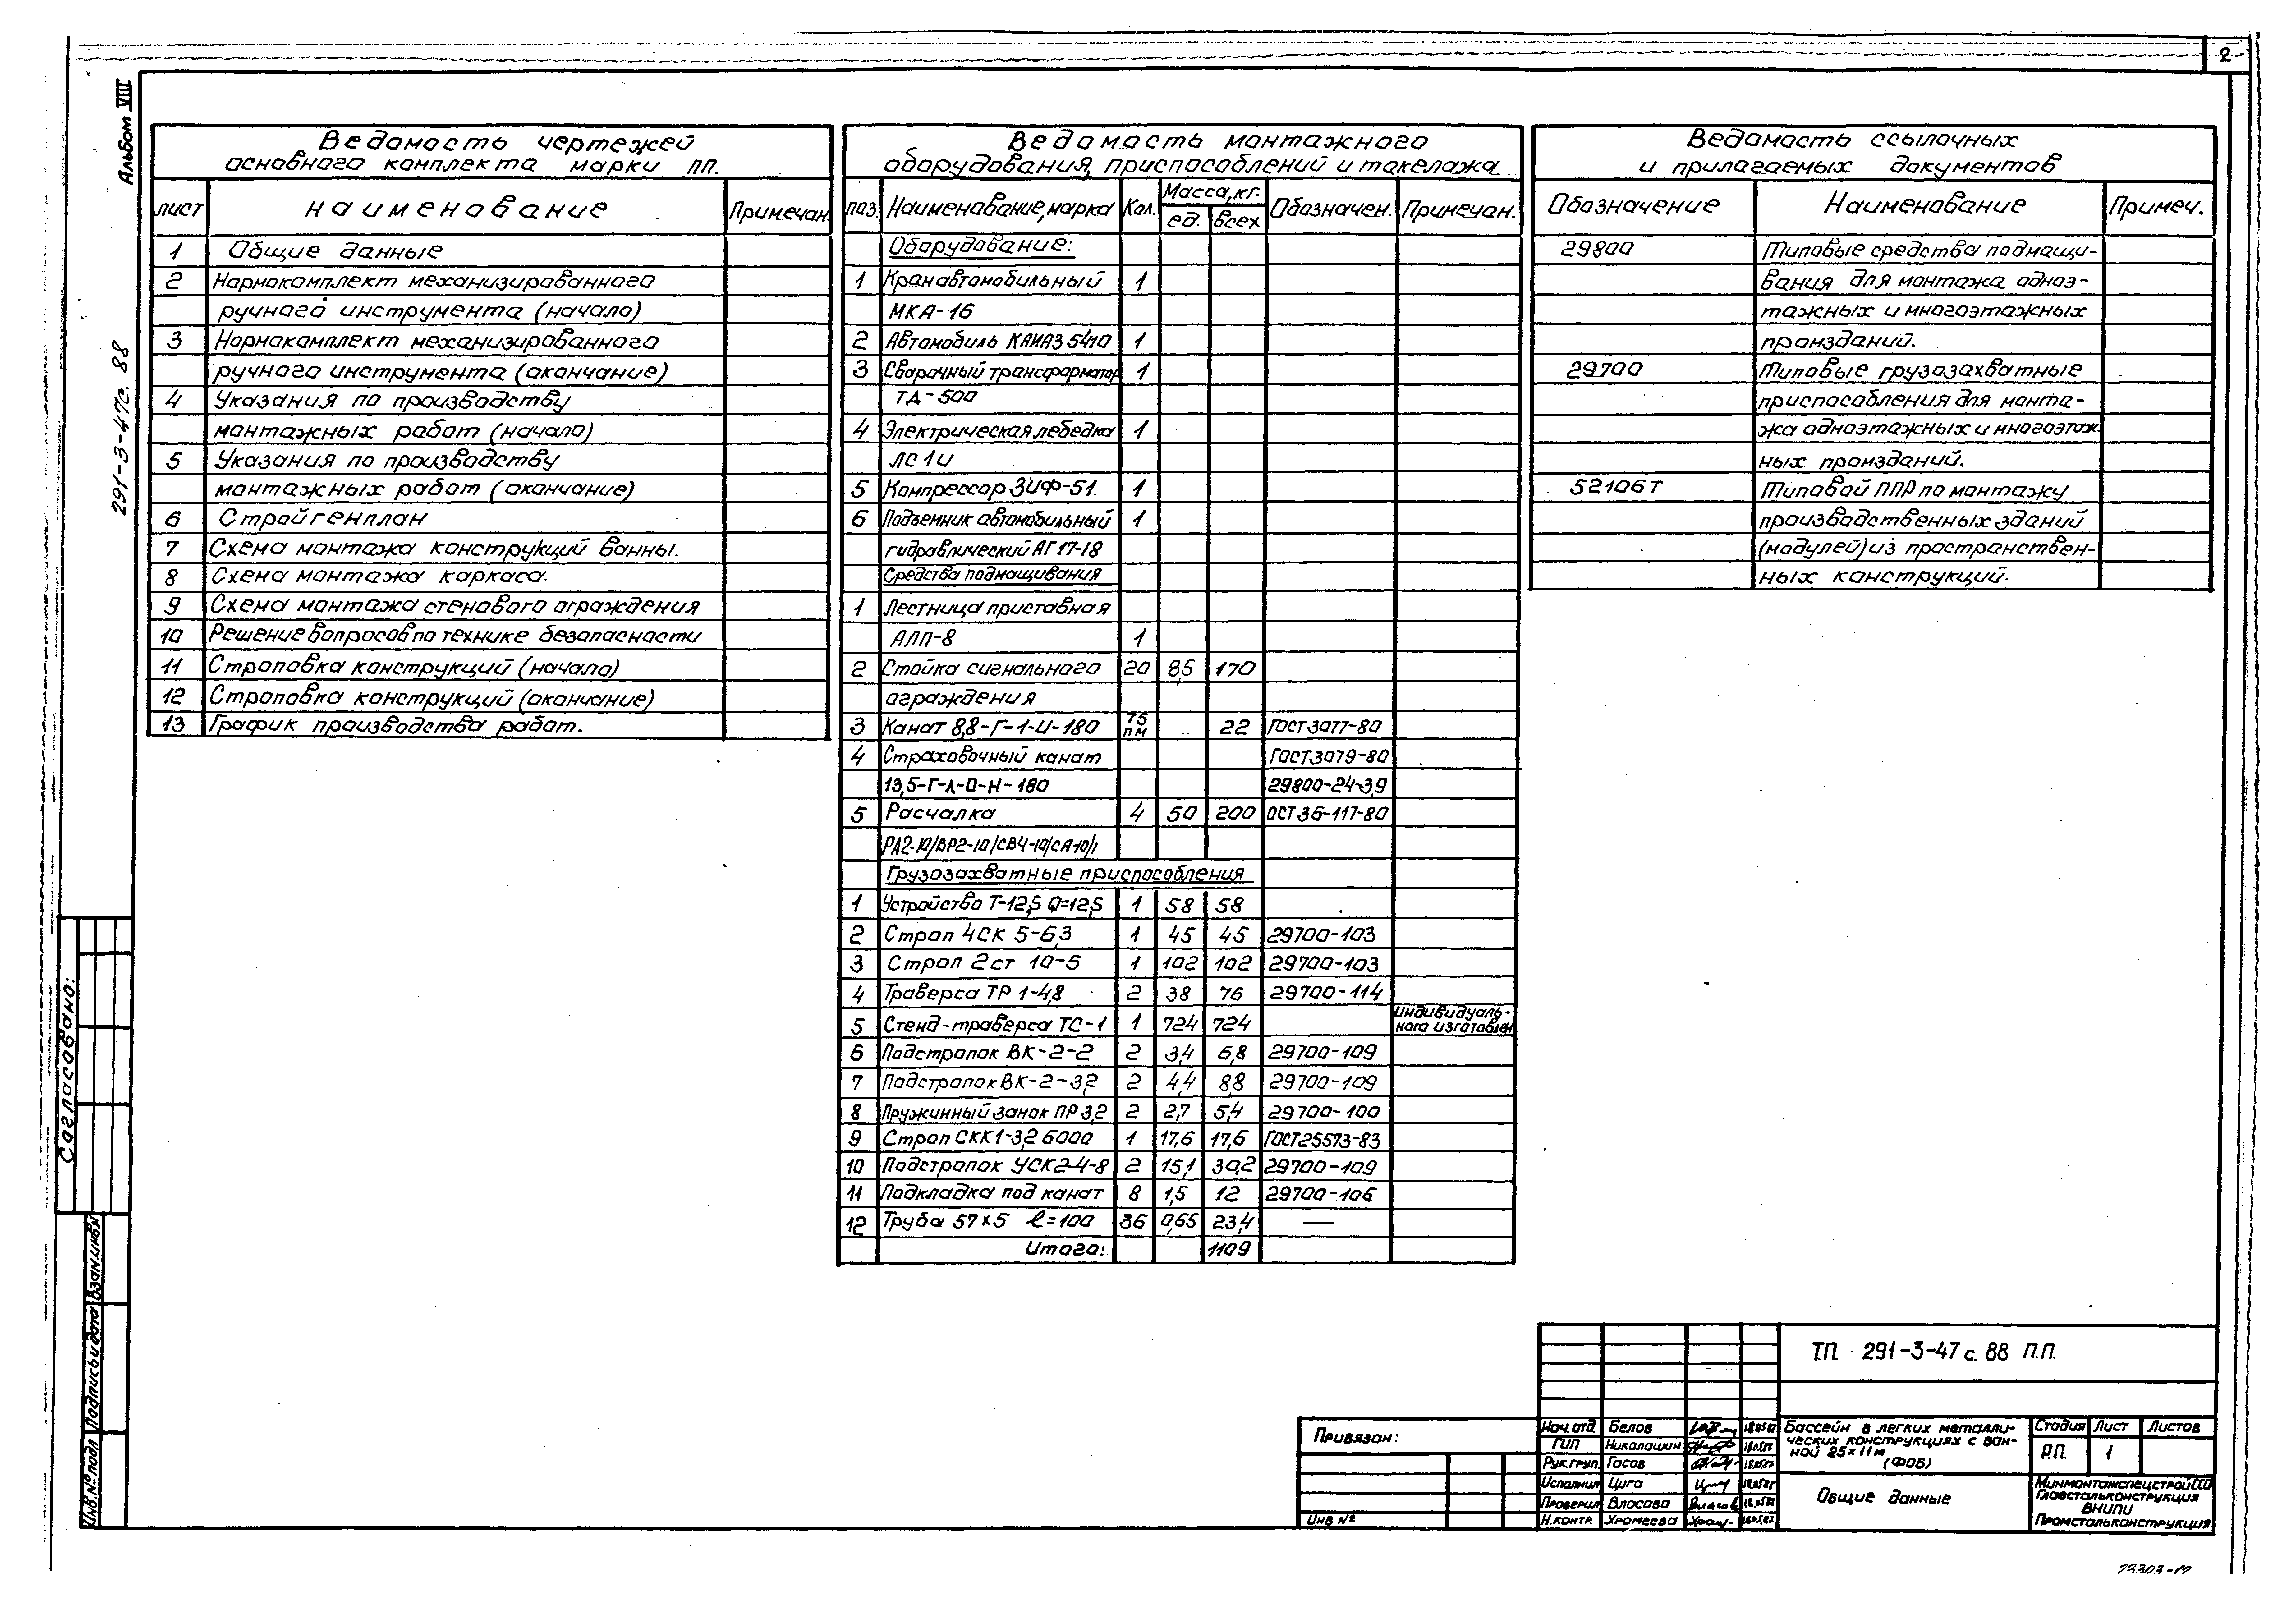 2
Альбом VIII
291-3-47с. 88
Ведомость чертежей
основного комплекта марки ПП.
лист наименование Примечан.
1 Общие данные
2 Нормокомплект механизированного
ручного инструмента (начало)
3 Нормокомплект механизированного
ручного инструмента (окончание)
4 Указания по производству
монтажных работ (начало)
5 Указания по производству
монтажных работ (окончание)
6 Стройгенплан
7 Схема монтажа конструкций ванны.
8 Схема монтажа каркаса.
9 Схема монтажа стенового ограждения
10 Решение вопросов по технике безопасности
11 Строповка конструкций (начало)
12 Строповка конструкций (окончание)
13 График производства работ.
Ведомость монтажного
оборудования, приспособлений и такелажа
поз. Наименование, марка Кол. Масса, кг. Обозначен. Примечан.
ед. всех
Оборудование:
1 Кран автомобильный 1
МКА-16
2 Автомобиль КАМАЗ 5410 1
3 Сварочный трансформатор 1
ТД-500
4 Электрическая лебедка 1
5 Компрессор ЗИФ-51 1
6 Подъемник автомобильный 1
гидравлический АГ17-18
Средства подмащивания
1 Лестница приставная
АЛП-8 1
2 Стойка сигнального 20 8,5 170
ограждения
3 Канат 8,8-Г-1-И-180 75 пм 22 ГОСТ 3077-80
4 Страховочный канат ГОСТ 3079-80
13,5-Г-Л-О-Н-180 29800-24-3,9
5 Расчалка 4 50 200 ОСТ 36-117-80
РА2-10/ВР2-10/СВЧ-10/СА-10/1
Грузозахватные приспособления
1 Устройство Т-12,5 Q=12,5 1 58 58
2 Строп 4СК 5-6,3 1 45 45 29700-103
3 Строп 2ст 10-5 1 102 102 29700-103
4 Траверса ТР 1-4,8 2 38 76 29700-114
5 Стенд-траверса ТС-1 1 724 724 индивидуаль-
ного изготовлен.
6 Подстропок ВК-2-2 2 3,4 6,8 29700-109
7 Подстропок ВК-2-3,2 2 4,4 8,8 29700-109
8 Пружинный замок ПР 3,2 2 2,7 5,4 29700-100
9 Строп СКК1-3,2 6000 1 17,6 17,6 ГОСТ 25573-83
10 Подстропок УСК2-4-8 2 15,1 30,2 29700-109
11 Подкладка под канат 8 1,5 12 29700-106
12 Труба 57×5 ℓ=100 36 0,65 23,4 —
Итого: 1109
Ведомость ссылочных
и прилагаемых документов
Обозначение Наименование Примеч.
29800 Типовые средства подмащи-
вания для монтажа одноэ-
тажных и многоэтажных
промзданий.
29700 Типовые грузозахватные
приспособления для монта-
жа одноэтажных и многоэтаж-
ных промзданий.
52106Т Типовой ППР по монтажу
производственных зданий
(модулей) из пространствен-
ных конструкций.
Согласовано:
Взам.инв.№
Подпись и дата
Инв.№ подл
Привязан:
Инв №
Т.П. 291-3-47 с. 88 П.П.
Нач. отд. Белов
ГИП Николашин
Рук. груп. Гасов
Исполнил Цига
Проверил Власова
Н.контр. Хромеева
Бассейн в легких металли-
ческих конструкциях с ван-
ной 25×11м
(ФОБ)
Стадия Лист Листов
Р.П. 1
Общие данные
Минмонтажспецстрой СССР
Главстальконструкция
ВНИПИ
Промстальконструкция